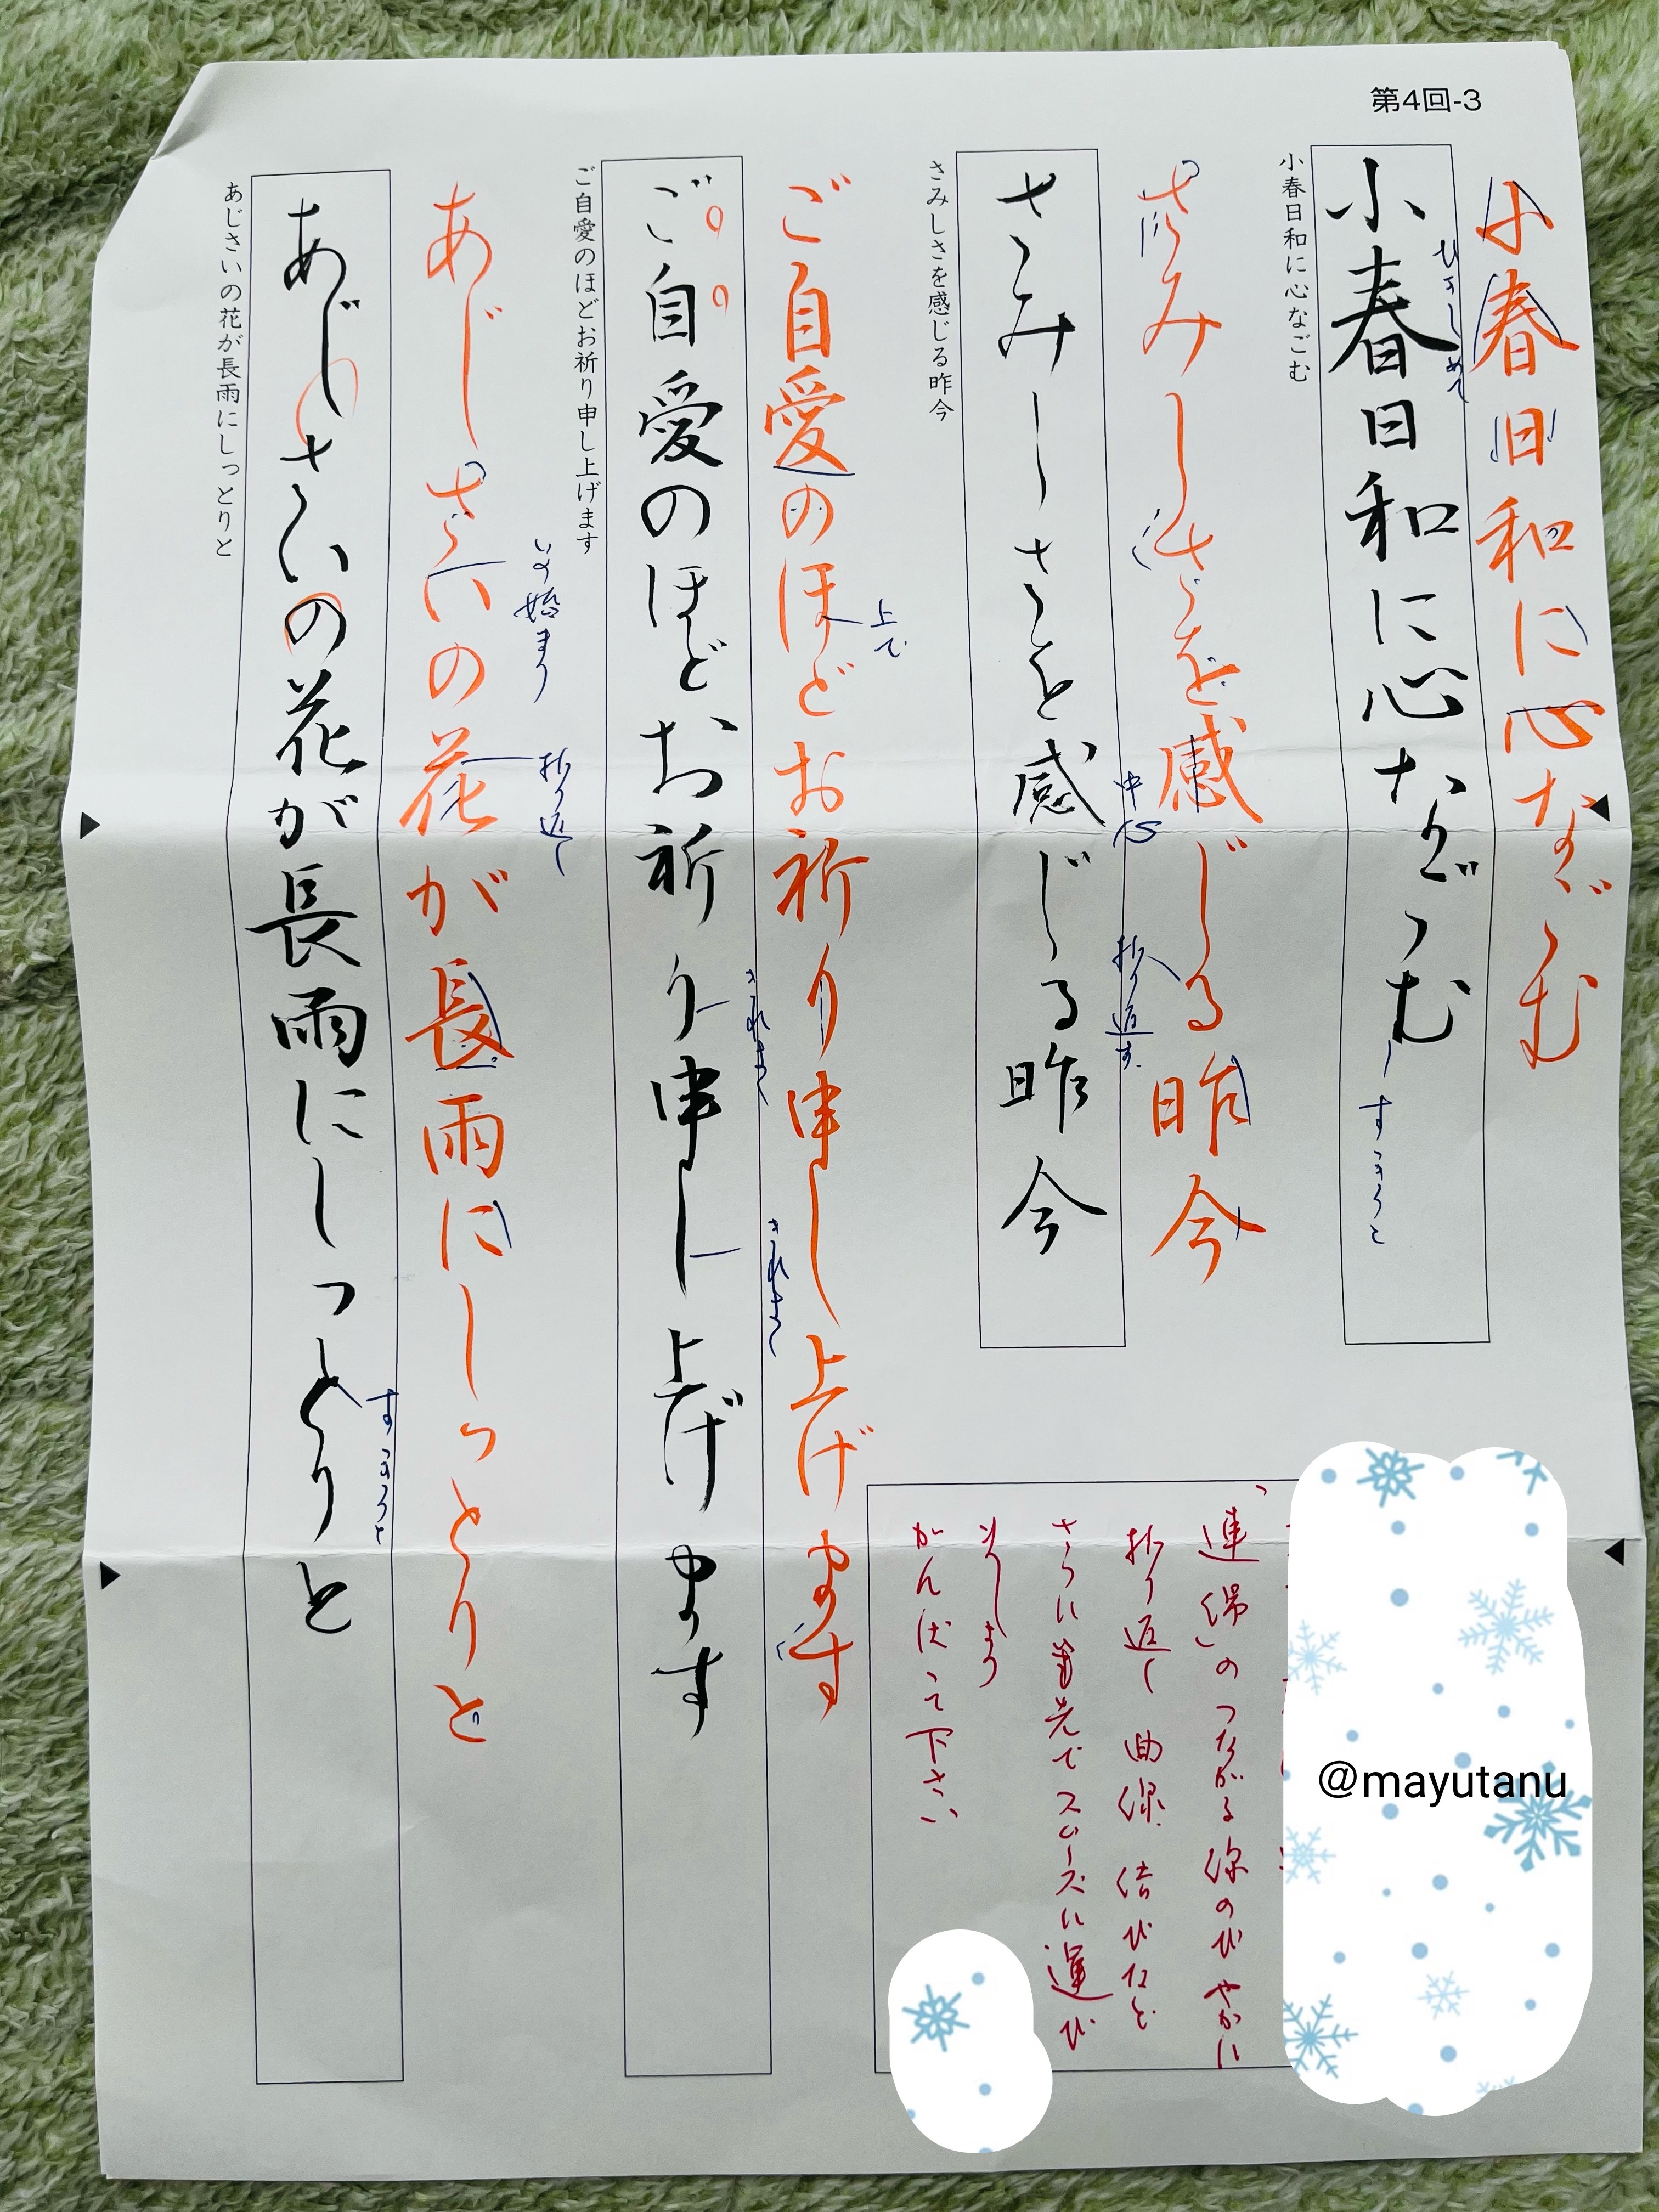 第4回-3
小春日和に心なごむ
ひきしめて
小春日和に心なごむ
すっきりと
小春日和に心なごむ
さみしさを感じる昨今
中心
折り返す
さみしさを感じる昨今
さみしさを感じる昨今
ご自愛のほどお祈り申し上げます
上で
きれまく
きれまく
ご自愛のほどお祈り申し上げます
ご自愛のほどお祈り申し上げます
いの始まり
折り返し
あじさいの花が長雨にしっとりと
すっきりと
あじさいの花が長雨にしっとりと
あじさいの花が長雨にしっとりと
「連綿」のつながる線のびやかに
折り返し 曲線 結びなど
さらに筆先でスムーズに運び
ましょう
がんばって下さい
@mayutanu